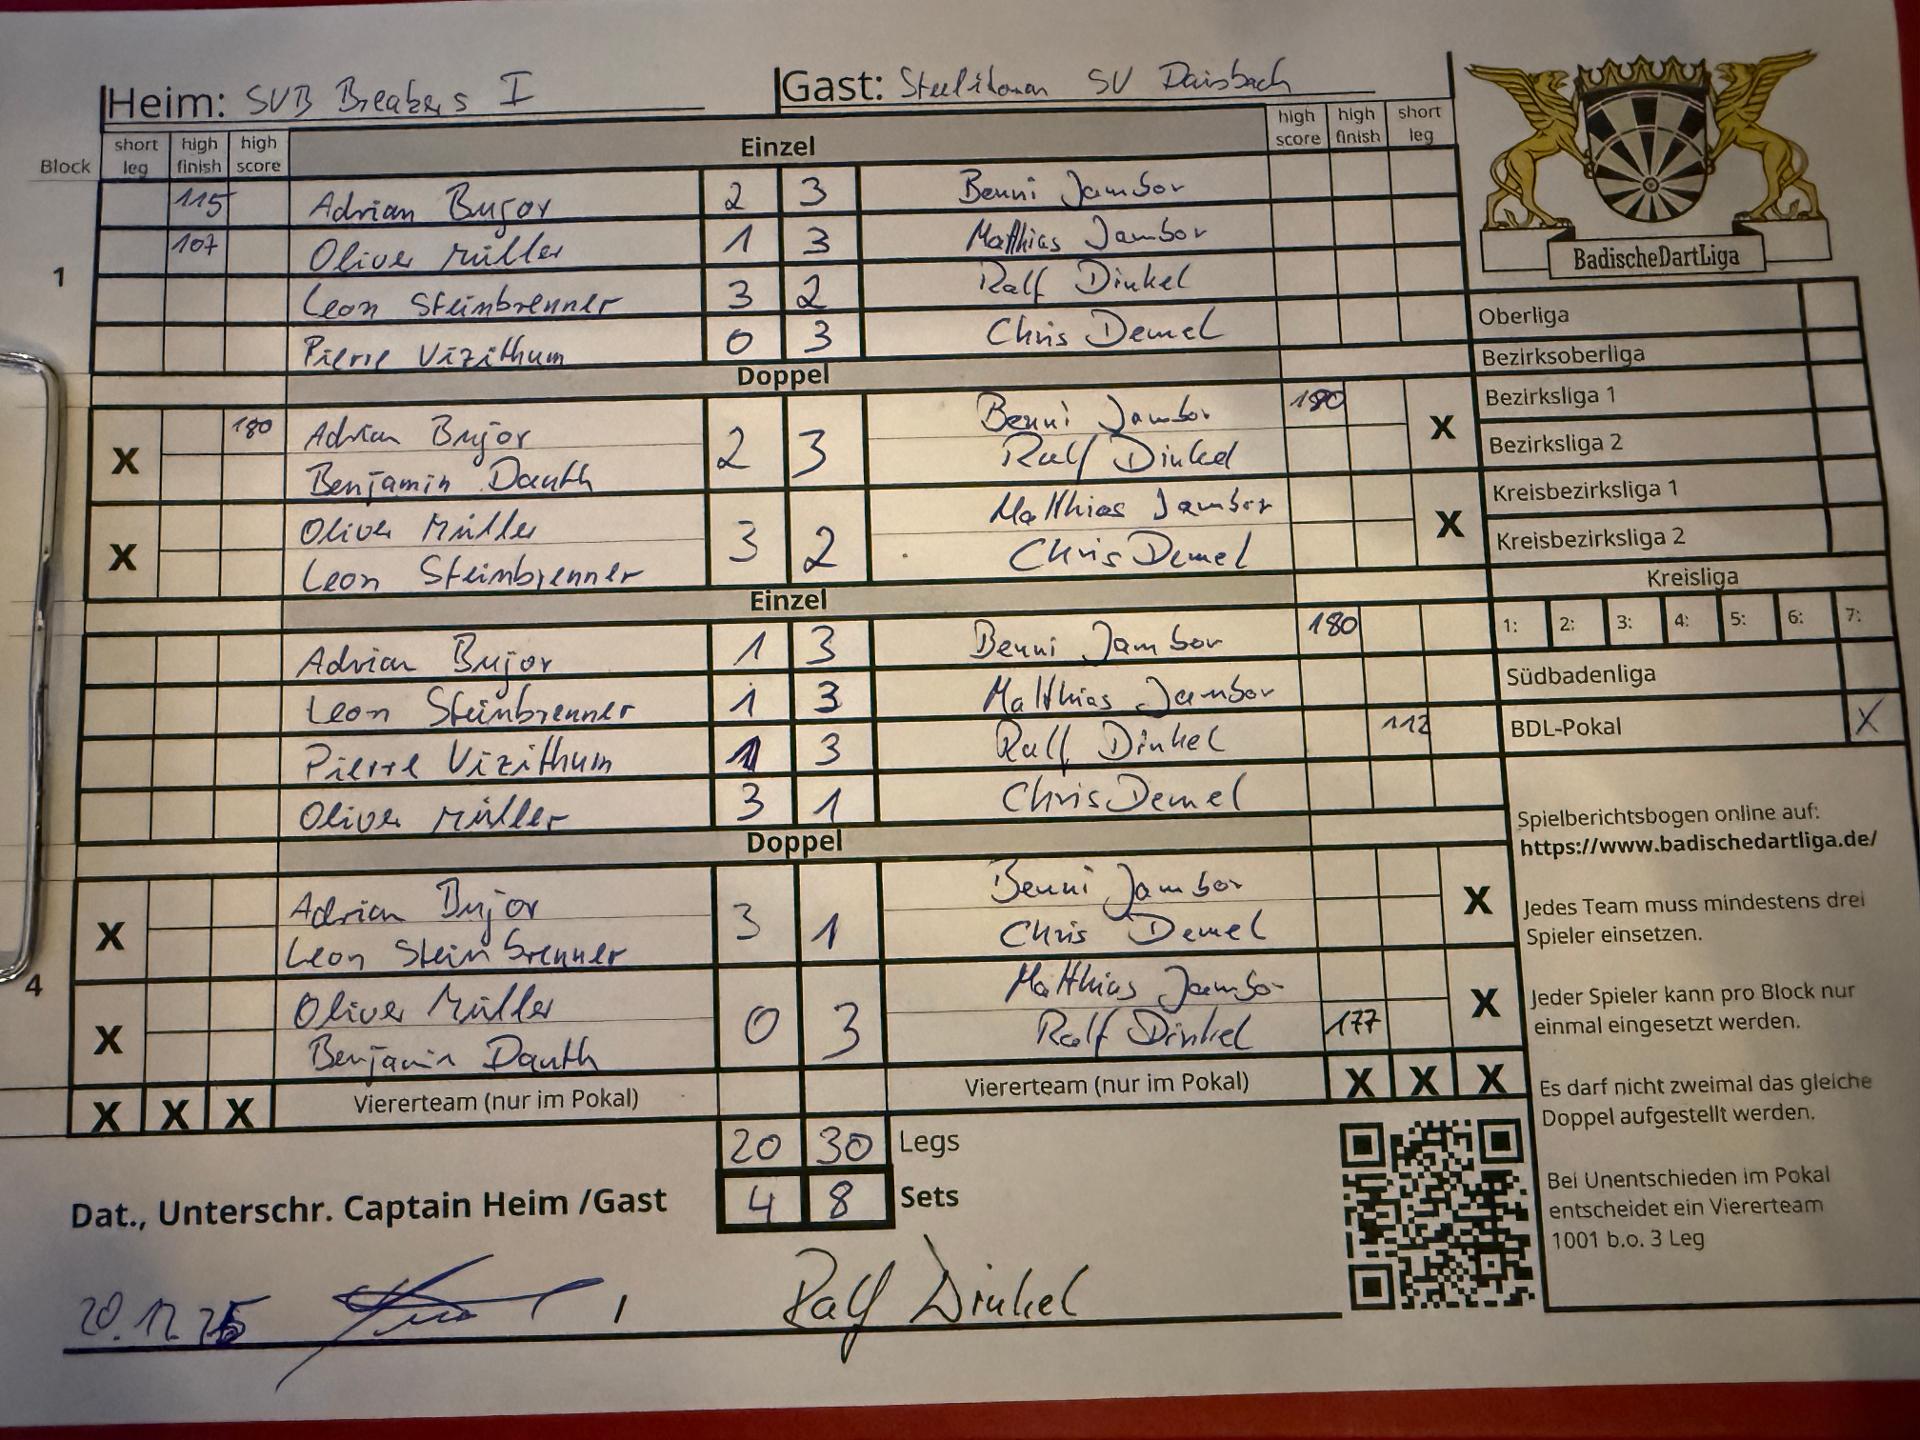 Heim: SVB Breakers I Gast: Steelitonan SV Daisbach
Block short leg high finish high score Einzel high score high finish short leg
1
115 Adrian Bujor 2 3 Benni Jambor
107 Oliver Müller 1 3 Matthias Jambor
Leon Steinbrenner 3 2 Ralf Dinkel
Pierre Vizithum 0 3 Chris Demel
Doppel
X 180 Adrian Bujor 2 3 Benni Jambor 180 X
Benjamin Dauth Ralf Dinkel
X Oliver Müller 3 2 Matthias Jambor X
Leon Steinbrenner Chris Demel
Einzel
Adrian Bujor 1 3 Benni Jambor 180
Leon Steinbrenner 1 3 Matthias Jambor
Pierre Vizithum 1 3 Ralf Dinkel 112
Oliver Müller 3 1 Chris Demel
Doppel
4
X Adrian Bujor 3 1 Benni Jambor X
Leon Steinbrenner Chris Demel
X Oliver Müller 0 3 Matthias Jambor X
Benjamin Dauth Ralf Dinkel 177
X X X Vierteam (nur im Pokal) Viererteam (nur im Pokal) X X X
20 30 Legs
4 8 Sets
Dat., Unterschr. Captain Heim /Gast
20.12.25 / Ralf Dinkel
BadischeDartLiga
Oberliga
Bezirksoberliga
Bezirksliga 1
Bezirksliga 2
Kreisbezirksliga 1
Kreisbezirksliga 2
Kreisliga
1: 2: 3: 4: 5: 6: 7:
Südbadenliga
BDL-Pokal X
Spielberichtsbogen online auf:
https://www.badischedartliga.de/
Jedes Team muss mindestens drei
Spieler einsetzen.
Jeder Spieler kann pro Block nur
einmal eingesetzt werden.
Es darf nicht zweimal das gleiche
Doppel aufgestellt werden.
Bei Unentschieden im Pokal
entscheidet ein Viererteam
1001 b.o. 3 Leg